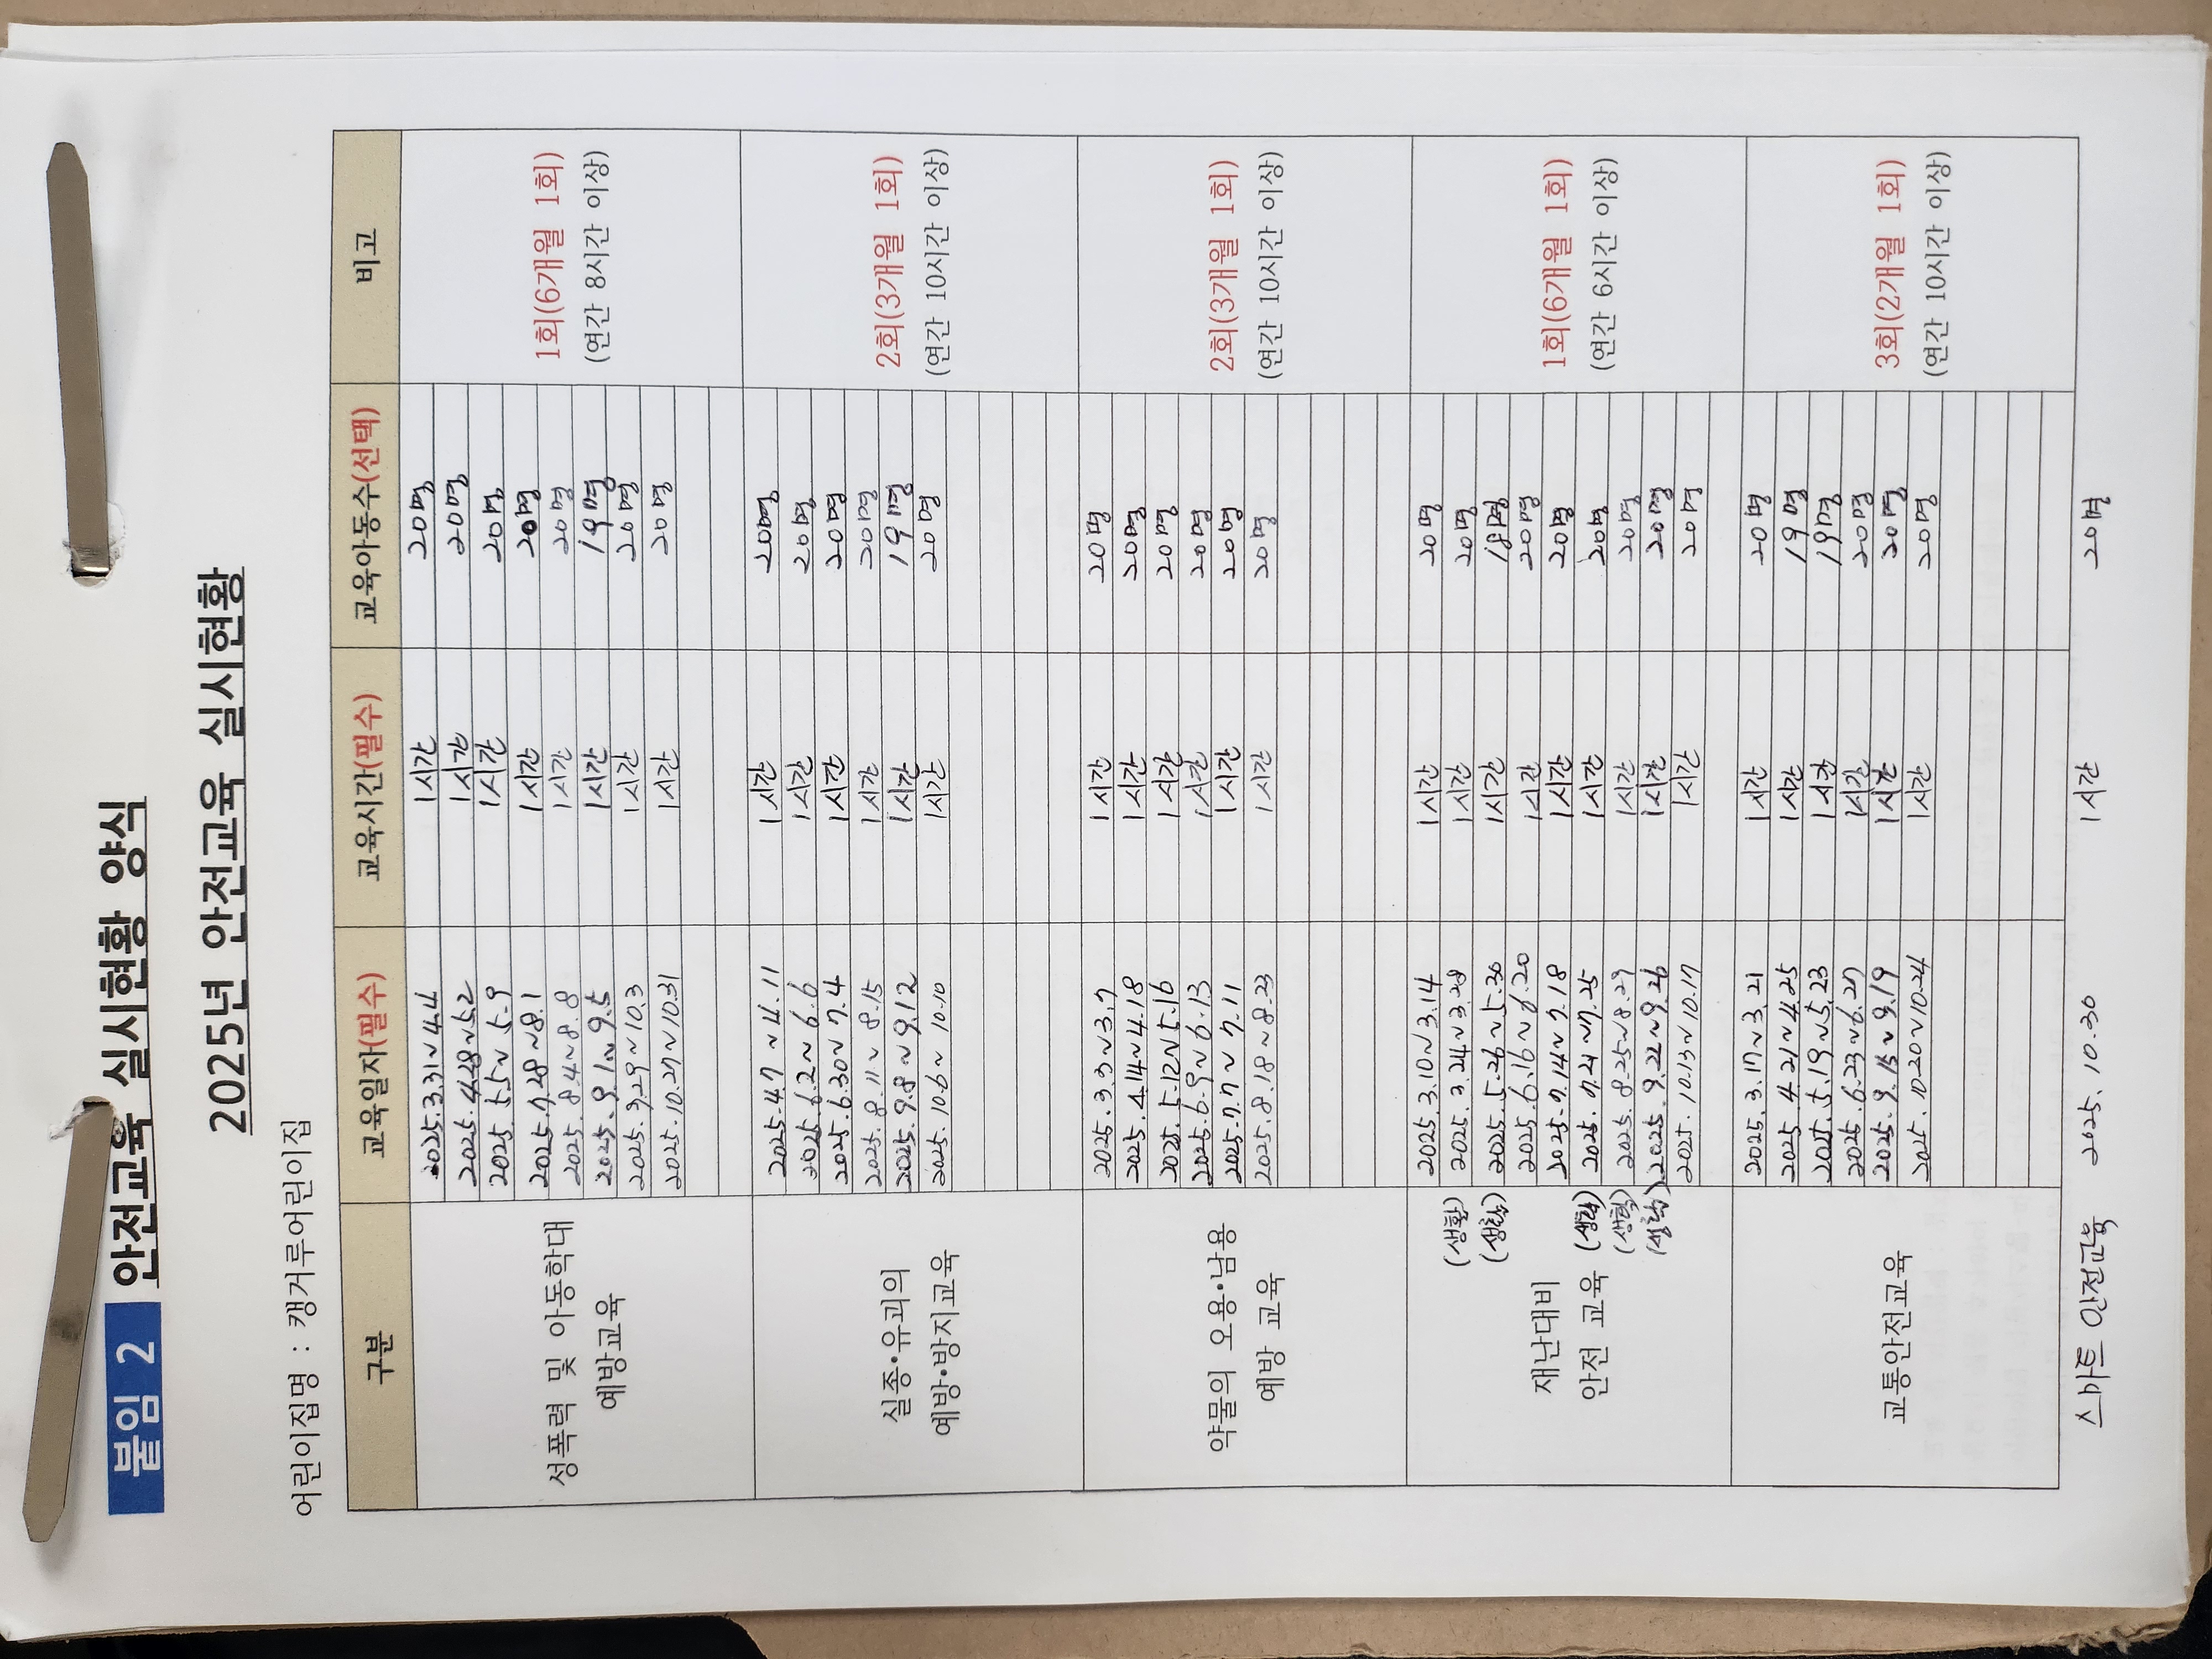 붙임 2 안전교육 실시현황 양식
2025년 안전교육 실시현황
어린이집명 : 캥거루어린이집
구분 교육일자(필수) 교육시간(필수) 교육아동수(선택) 비고
성폭력 및 아동학대
예방교육
2025.3.31~4.4 1시간 20명
2025.4.28~5.2 1시간 20명
2025.5.5~5.9 1시간 20명
2025.7.28~8.1 1시간 20명
2025.8.4~8.8 1시간 20명
2025.9.1~9.5 1시간 19명
2025.9.29~10.3 1시간 20명
2025.10.27~10.31 1시간 20명
1회(6개월 1회)
(연간 8시간 이상)
실종•유괴의
예방•방지교육
2025.4.7~4.11 1시간 20명
2025.6.2~6.6 1시간 20명
2025.6.30~7.4 1시간 20명
2025.8.11~8.15 1시간 20명
2025.9.8~9.12 1시간 19명
2025.10.6~10.10 1시간 20명
2회(3개월 1회)
(연간 10시간 이상)
약물의 오용•남용
예방 교육
2025.3.3~3.7 1시간 20명
2025.4.14~4.18 1시간 20명
2025.5.12~5.16 1시간 20명
2025.6.9~6.13 1시간 20명
2025.7.7~7.11 1시간 20명
2025.8.18~8.23 1시간 20명
2회(3개월 1회)
(연간 10시간 이상)
재난대비
안전 교육
2025.3.10~3.14 1시간 20명
(생활) 2025.3.24~3.28 1시간 20명
(생활) 2025.5.26~5.30 1시간 18명
2025.6.16~6.20 1시간 20명
2025.7.14~7.18 1시간 20명
(생활) 2025.7.21~7.25 1시간 20명
(생활) 2025.8.25~8.29 1시간 20명
(생활) 2025.9.22~9.26 1시간 20명
2025.10.13~10.17 1시간 20명
1회(6개월 1회)
(연간 6시간 이상)
교통안전교육
2025.3.17~3.21 1시간 20명
2025.4.21~4.25 1시간 19명
2025.5.19~5.23 1시간 19명
2025.6.23~6.27 1시간 20명
2025.9.15~9.19 1시간 20명
2025.10.20~10.24 1시간 20명
3회(2개월 1회)
(연간 10시간 이상)
스마트 안전교육 2025.10.30 1시간 20명